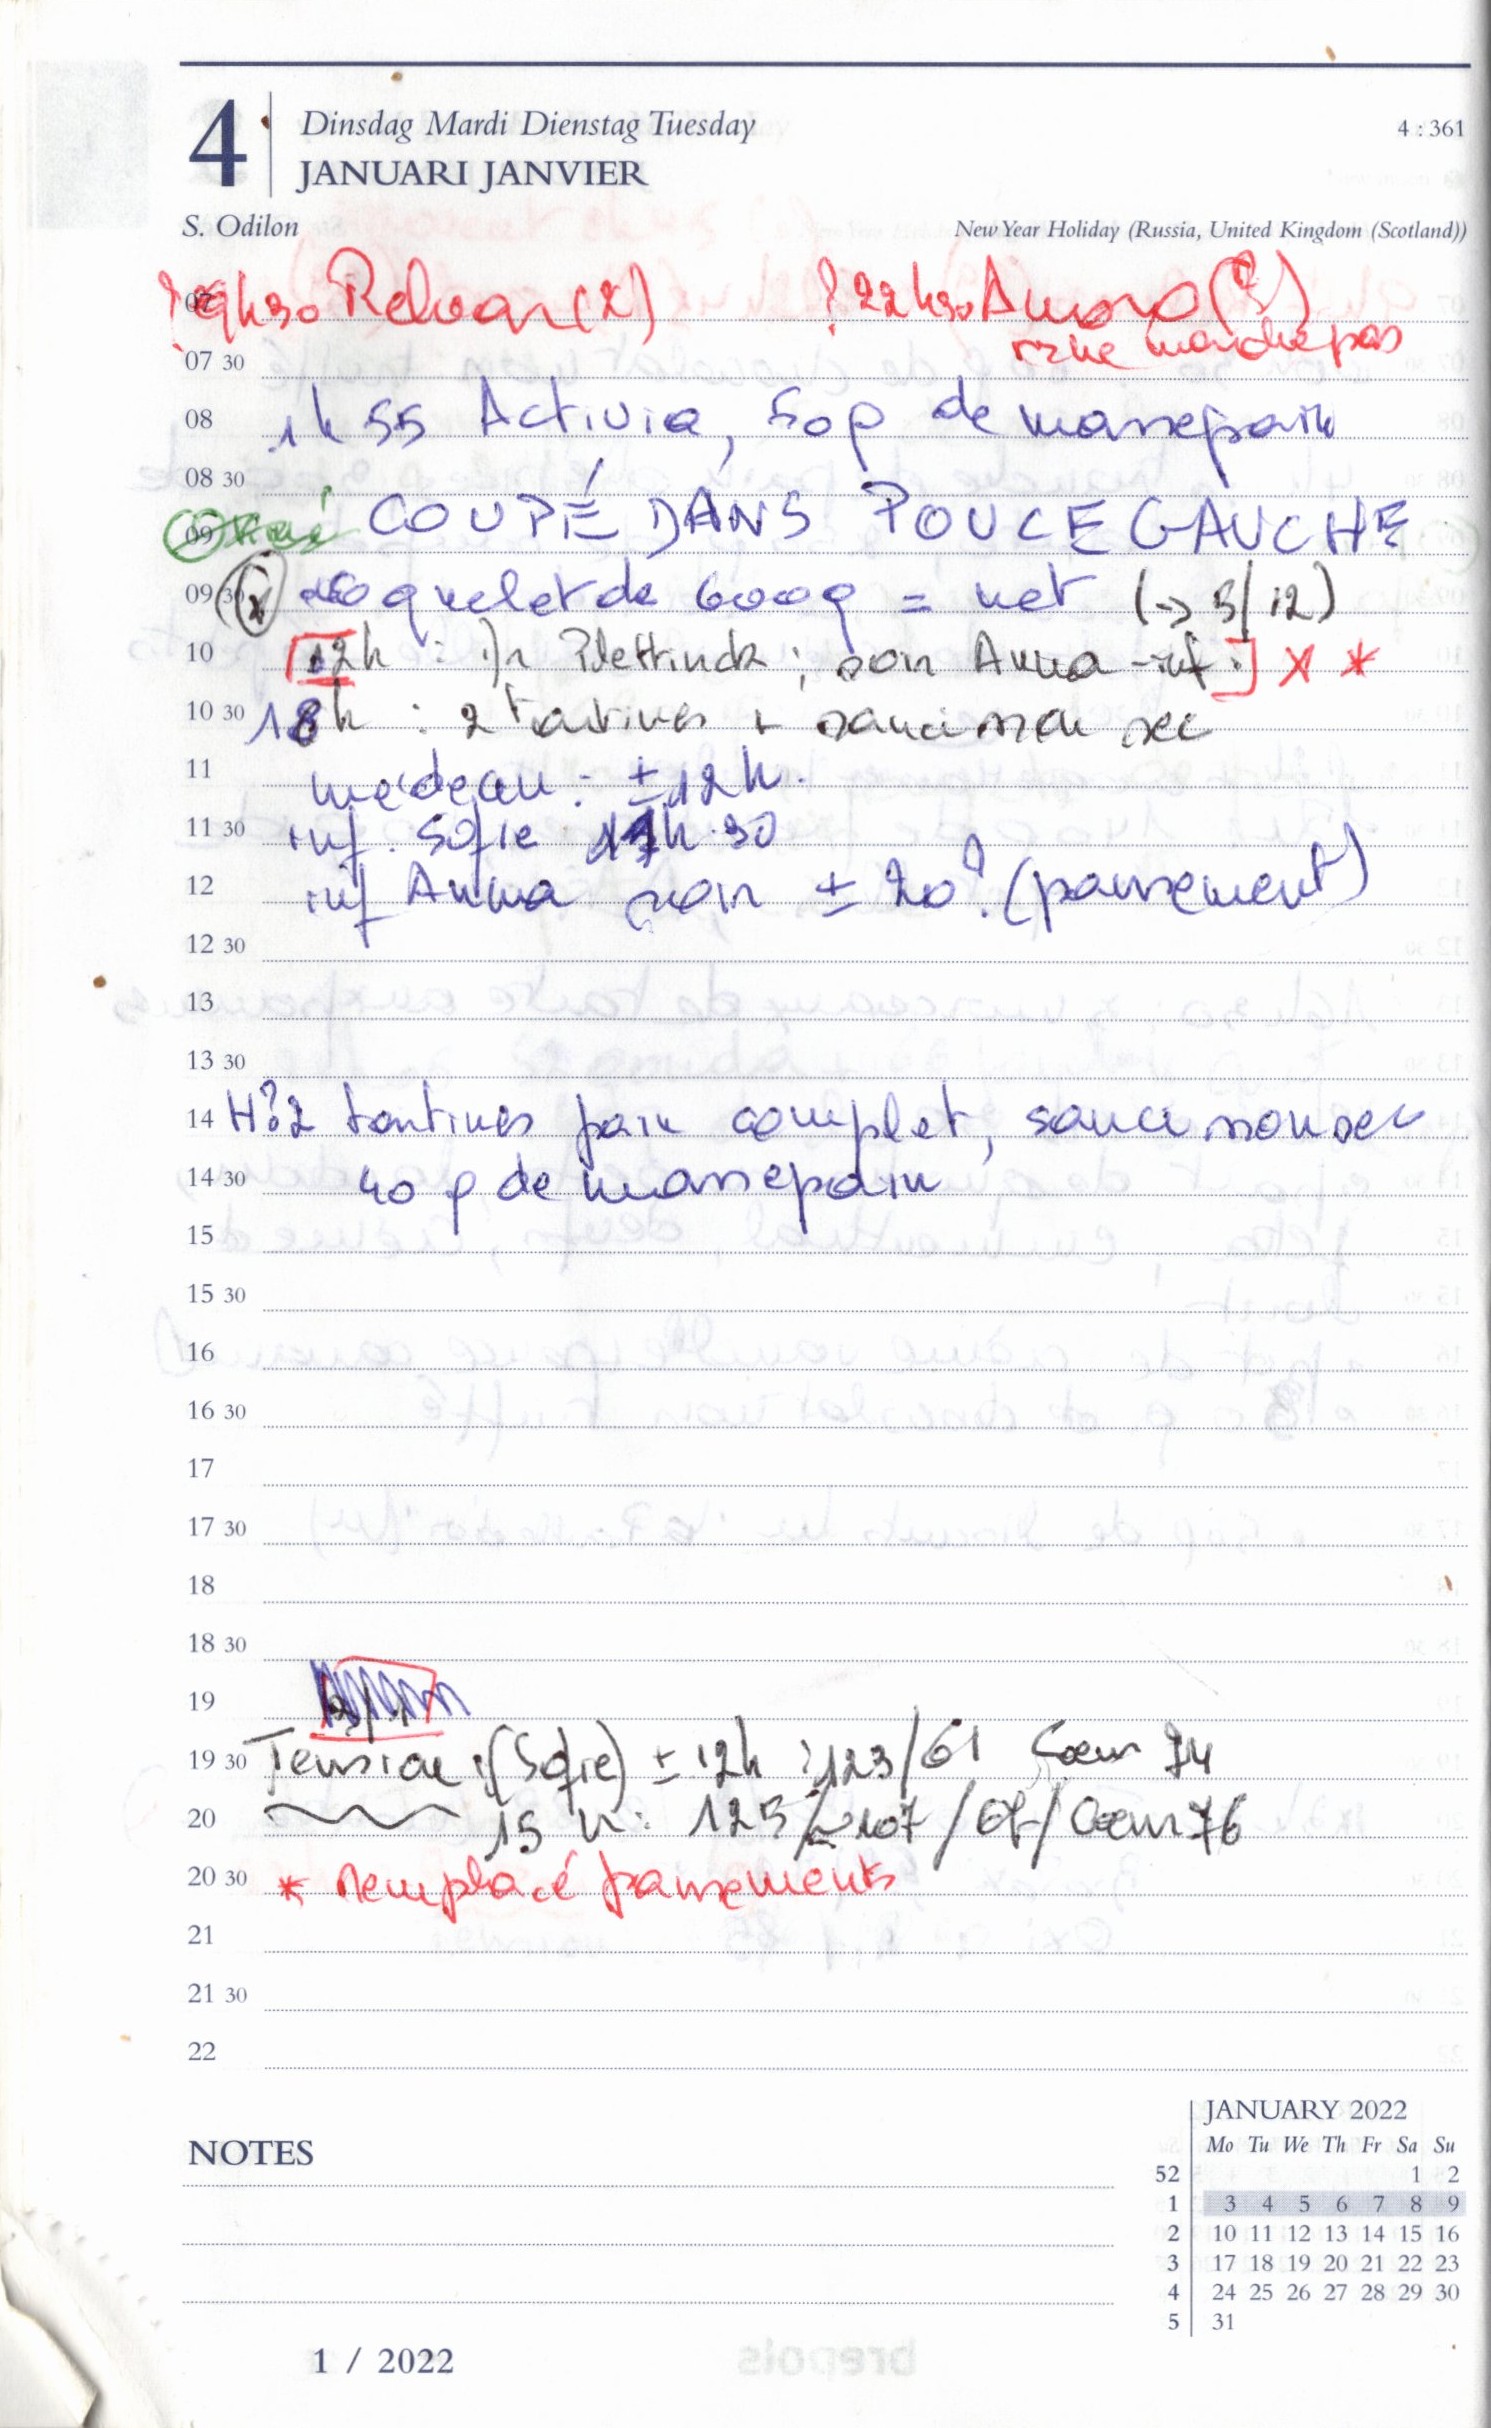 4 Dinsdag Mardi Dienstag Tuesday 4 : 361
JANUARI JANVIER
S. Odilon New Year Holiday (Russia, United Kingdom (Scotland))
07 9h30 Relvar (2) ? 22h30 Anoro (?)
marche pas
07 30
08 1h55 Activia, 50 g de massepain
08 30
09 COUPÉ DANS POUCE GAUCHE
09 30 (x) coquelet de 600g = net (→ 3/12)
10 [12h : Dr Plettinck ; soir Anna inf.] x *
10 30 18h : 2 tartines + saucisson sec
11 médecin : ± 12h.
11 30 inf. Sofie 11h.30
12 inf Anna soir ± 20? (pansement)
12 30
13
13 30
14 H? 2 tartines pain complet, saucisson sec
14 30 40 g de massepain
15
15 30
16
16 30
17
17 30
18
18 30
19
19 30 Tension : (Sofie) ± 12h : 123/61 Cœur 74
20 15 h : 125 107 / 67 / Cœur 76
20 30 * remplacé pansements
21
21 30
22
JANUARY 2022
Mo Tu We Th Fr Sa Su
NOTES
52 1 2
1 3 4 5 6 7 8 9
2 10 11 12 13 14 15 16
3 17 18 19 20 21 22 23
4 24 25 26 27 28 29 30
5 31
1 / 2022